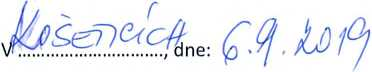 V Košeticích, dne: 6.9.2019